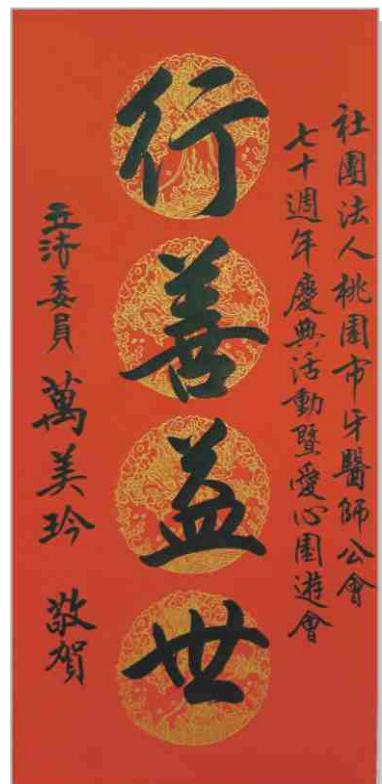 社團法人桃園市牙醫師公會
七十週年慶典活動暨愛心園遊會
行善益世
立法委員 萬美玲 敬賀